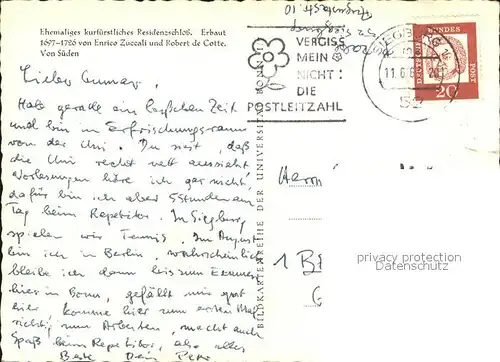 Ehemaliges kurfürstliches Residenzschloß. Erbaut
1697–1726 von Enrico Zuccali und Robert de Cotte.
Von Süden
Lieber
Hab gerade ein bißchen Zeit
und bin im Erfrischungsraum
von der Uni. Du siest, daß
die Uni recht nett aussieht
Vorlesungen höre ich gar nicht,
dafür bin ich aber 5 Stunden am
Tag beim Repetitor. In Siegburg
spielen wir Tennis. Im August
bin ich in Berlin, wahrscheinlich
bleibe ich dann bis zum Examen
hier in Bonn, gefällt mir gut
hier komme hier zum ersten Mal
richtig zum Arbeiten, macht auch
Spaß beim Repetitor, also alles
Beste Dein Peter
BILDKARTENREIHE DER UNIVERSITÄT BONN
VERGISS
MEIN
NICHT:
DIE
POSTLEITZAHL
SIEGBURG
11.6.
52
DEUTSCHE BUNDESPOST
20
Herrn
1 B
privacy protection
Datenschutz